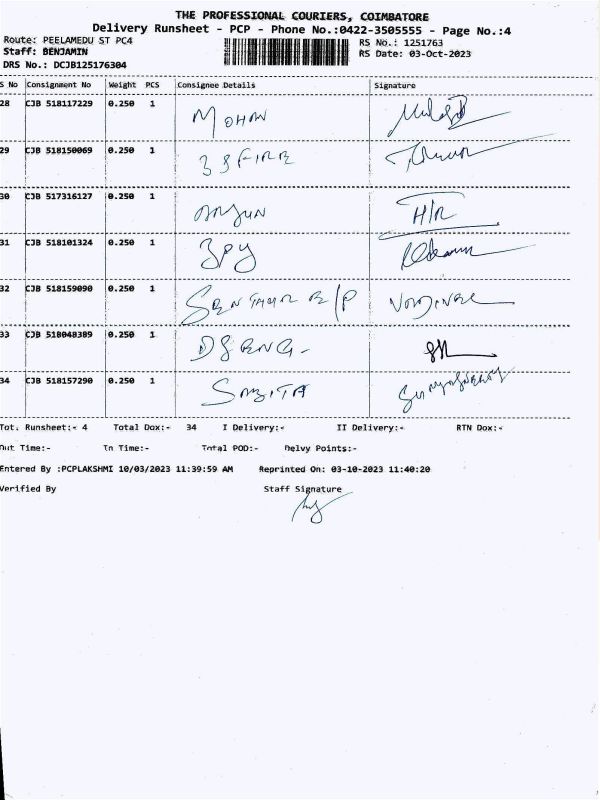 THE PROFESSIONAL COURIERS, COIMBATORE
Delivery Runsheet - PCP - Phone No.:0422-3505555 - Page No.:4
Route: PEELAMEDU ST PC4 RS No.: 1251763
Staff: BENJAMIN RS Date: 03-Oct-2023
DRS No.: DCJB125176304
S No Consignment No Weight PCS Consignee Details Signature
28 CJB 518117229 0.250 1 MOHAN
29 CJB 518150069 0.250 1 FIRE
30 CJB 517316127 0.250 1 ARJUN H/R
31 CJB 518101324 0.250 1
32 CJB 518159090 0.250 1 SENTHUR E/P
33 CJB 518048389 0.250 1 DSENG-
34 CJB 518157290 0.250 1
Tot. Runsheet:- 4 Total Dox:- 34 I Delivery:- II Delivery:- RTN Dox:-
Out Time:- In Time:- Total POD:- Delvy Points:-
Entered By :PCPLAKSHMI 10/03/2023 11:39:59 AM Reprinted On: 03-10-2023 11:40:20
Verified By Staff Signature